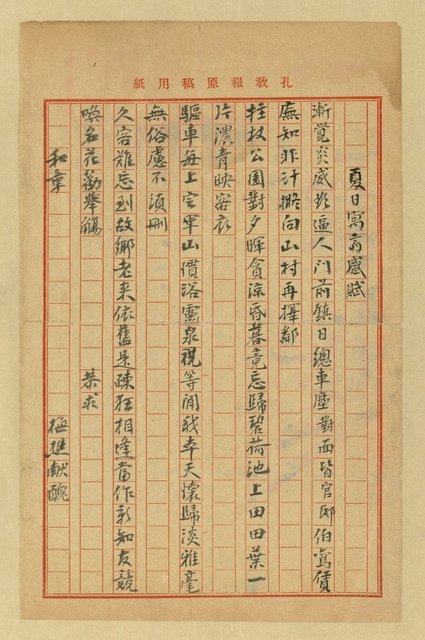 孔教報原稿用紙
夏日寓齋感賦
漸覺炎威欲逼人門前鎮日總車塵對面皆官邸伯鸞賃
廡知非計擬向山村再擇鄰
拄杖公園對夕暉貪涼昏暮竟忘歸碧荷池上田田葉一
片濃青映客衣
驅車每上定軍山慣浴靈泉視等閒我本天懷歸淡雅毫
無俗慮不須刪
久客難忘到故鄉老來依舊是疎狂相逢當作新知友競
喚名花勸舉觴 恭求
和章 梅樵獻醜